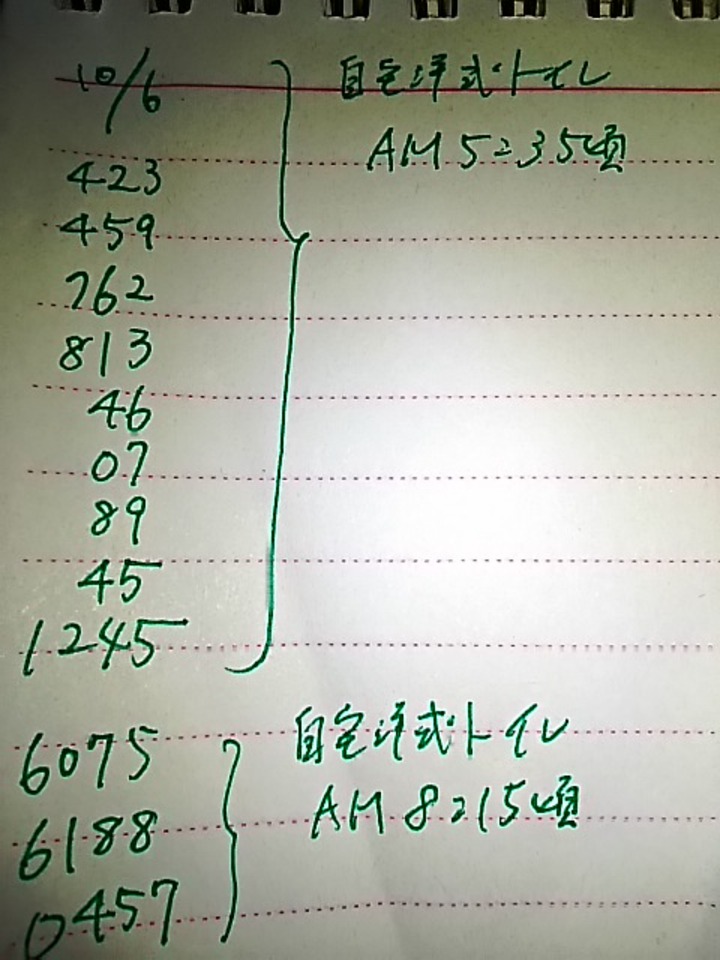 10/6
自宅洋式トイレ
AM 5:35頃
423
459
762
813
46
07
89
45
1245
自宅洋式トイレ
AM 8:15頃
6075
6188
0457